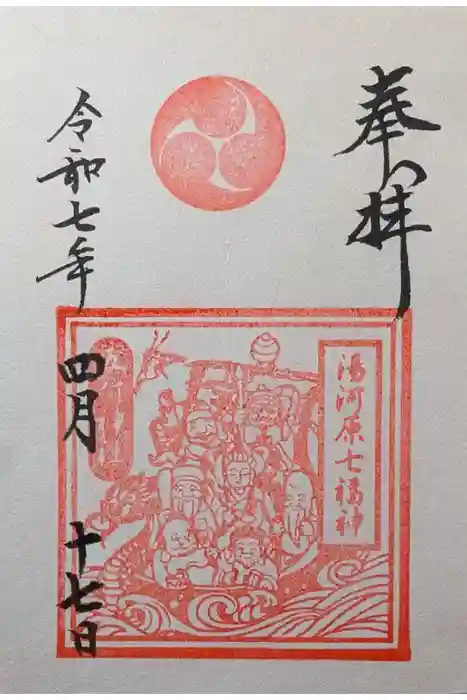 奉拝
湯河原七福神
令和七年
四月
十七日